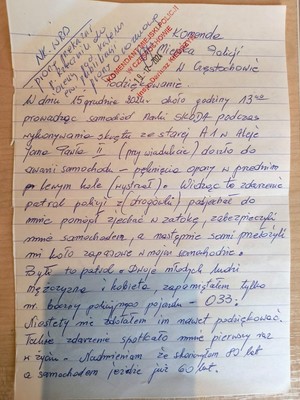 Komenda
Miejska Policji
w Częstochowie
Podziękowanie.
W dniu 15 grudnia 2024. około godziny 13
prowadząc samochód marki SKODA podczas
wykonywania skrętu ze starej A1 w Aleje
Jana Pawła II (przy wiadukcie) doszło do
awarii samochodu – pęknięcia opony w przednim
lewym kole (wystrzał). Widząc to zdarzenie
patrol policji z (drogówki) podjechał do
mnie pomógł zjechać w zatokę, zabezpieczyli
mnie samochodem, a następnie sami przełożyli
mi koło zapasowe w moim samochodzie.
Był to patrol – Dwoje młodych ludzi
mężczyzna i kobieta, zapamiętałem tylko
nr. boczny policyjnego pojazdu – 035.
Niestety nie zdołałem im nawet podziękować.
Takie zdarzenie spotkało mnie pierwszy raz
w życiu – Nadmieniam że skończyłem 80 lat
a samochodem jeżdżę już 60 lat.